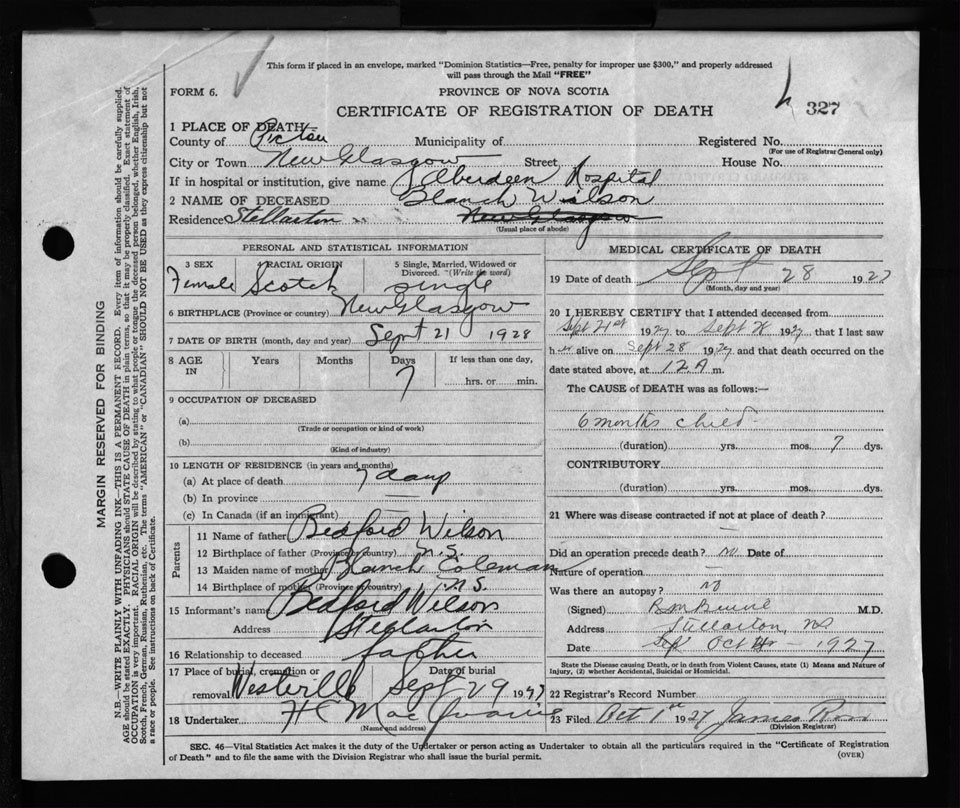 This form if placed in an envelope, marked "Dominion Statistics—Free, penalty for improper use $300," and properly addressed
will pass through the Mail "FREE"
FORM 6. PROVINCE OF NOVA SCOTIA
CERTIFICATE OF REGISTRATION OF DEATH
327
1 PLACE OF DEATH
County of Pictou Municipality of Registered No.
(For use of Registrar General only)
City or Town New Glasgow Street House No.
If in hospital or institution, give name Aberdeen Hospital
2 NAME OF DECEASED Blanch Wilson
Residence Stellarton New Glasgow
(Usual place of abode)
PERSONAL AND STATISTICAL INFORMATION
3 SEX 4 RACIAL ORIGIN 5 Single, Married, Widowed or
Divorced. (Write the word)
Female Scotch single
6 BIRTHPLACE (Province or country) New Glasgow
7 DATE OF BIRTH (month, day and year) Sept 21 1928
8 AGE IN Years Months Days If less than one day,
7 hrs. or min.
9 OCCUPATION OF DECEASED
(a)
(Trade or occupation or kind of work)
(b)
(Kind of industry)
10 LENGTH OF RESIDENCE (in years and months)
(a) At place of death 7 days
(b) In province —
(c) In Canada (if an immigrant)
Parents
11 Name of father Bedford Wilson
12 Birthplace of father (Province or country) N.S.
13 Maiden name of mother Blanch Coleman
14 Birthplace of mother (Province or country) N.S.
15 Informant's name Bedford Wilson
Address Stellarton
16 Relationship to deceased father
17 Place of burial, cremation or Date of burial
removal Westville Sept 29 1927
18 Undertaker H C Mac
(Name and address)
MEDICAL CERTIFICATE OF DEATH
19 Date of death Sept 28 1927
(Month, day and year)
20 I HEREBY CERTIFY that I attended deceased from
Sept 21st 1927 to Sept 28 1927 that I last saw
her alive on Sept 28 1927 and that death occurred on the
date stated above, at 12 A m.
The CAUSE of DEATH was as follows:—
6 months child
(duration) yrs. mos. 7 dys.
CONTRIBUTORY
(duration) yrs. mos. dys.
21 Where was disease contracted if not at place of death?
—
Did an operation precede death? no Date of
Nature of operation —
Was there an autopsy? no
(Signed) M.D.
Address Stellarton, NS
Date Sept Oct 1927
State the Disease Causing Death, or in death from Violent Causes, state (1) Means and Nature of
Injury, (2) whether Accidental, Suicidal or Homicidal.
22 Registrar's Record Number
23 Filed Oct 1st 1927 James
(Division Registrar)
SEC. 46—Vital Statistics Act makes it the duty of the Undertaker or person acting as Undertaker to obtain all the particulars required in the "Certificate of Registration
of Death" and to file the same with the Division Registrar who shall issue the burial permit. (OVER)
MARGIN RESERVED FOR BINDING
N.B.—WRITE PLAINLY WITH UNFADING INK—THIS IS A PERMANENT RECORD. Every item of information should be carefully supplied.
AGE should be stated EXACTLY. PHYSICIANS should STATE CAUSE OF DEATH in plain terms, so that it may be properly classified. Exact statement of
OCCUPATION is very important. RACIAL ORIGIN will be described by stating to what people or tongue the deceased person belonged, whether English, Irish,
Scotch, French, German, Russian, Ruthenian, etc. The terms "AMERICAN" or "CANADIAN" SHOULD NOT BE USED as they express citizenship but not
a race or people. See instructions on back of Certificate.